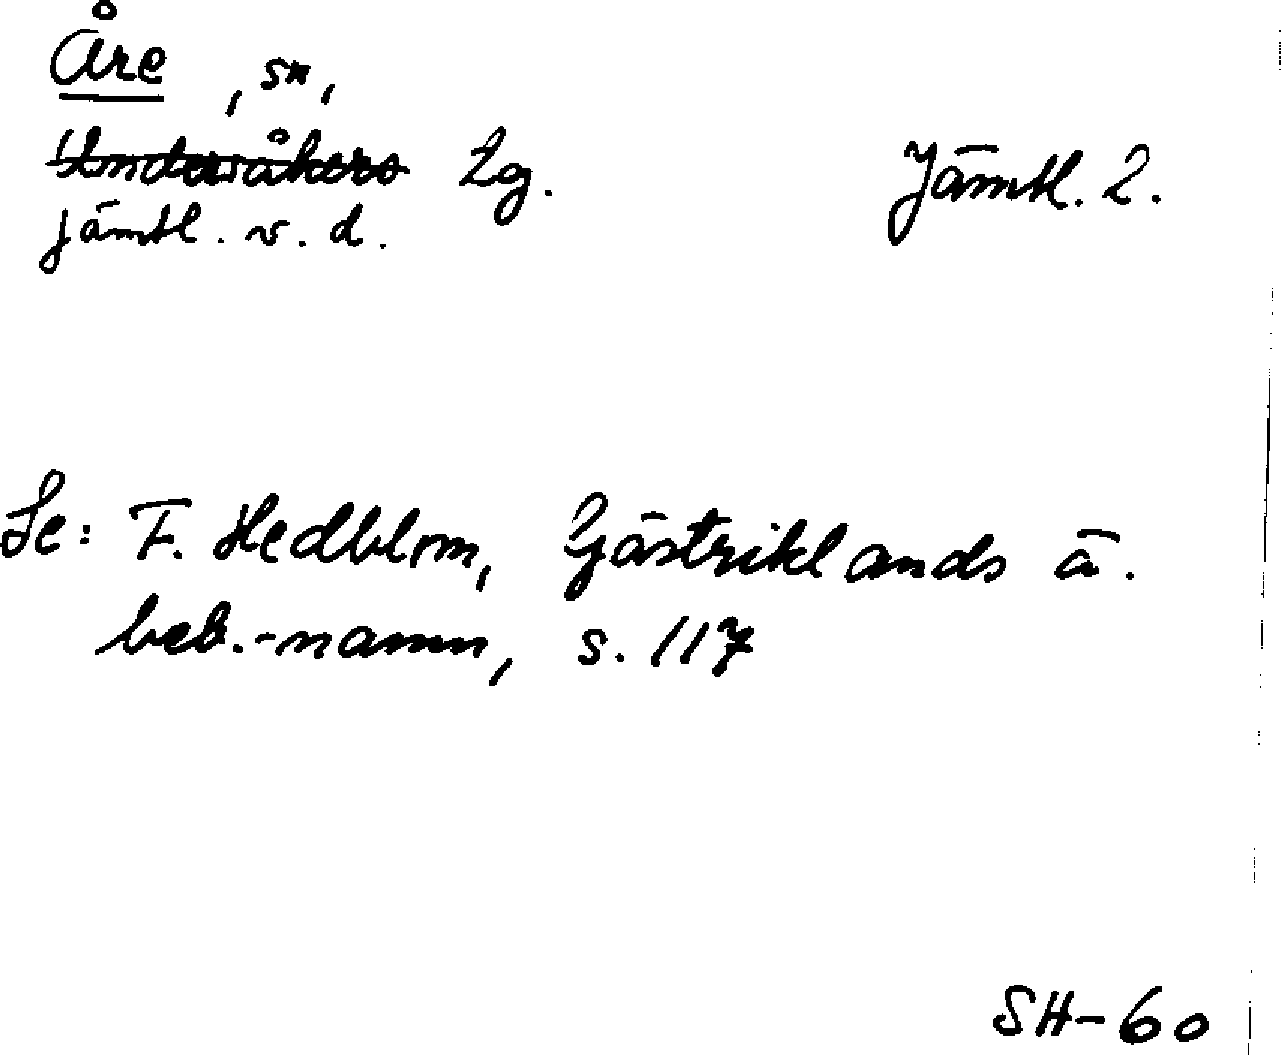 Åre, sn,
Undersåkers Lg. Jämtl. l.
jämtl. v. d.
Se: F. Hedblom, Gästriklands ä.
beb.-namn, s. 117
SH-60